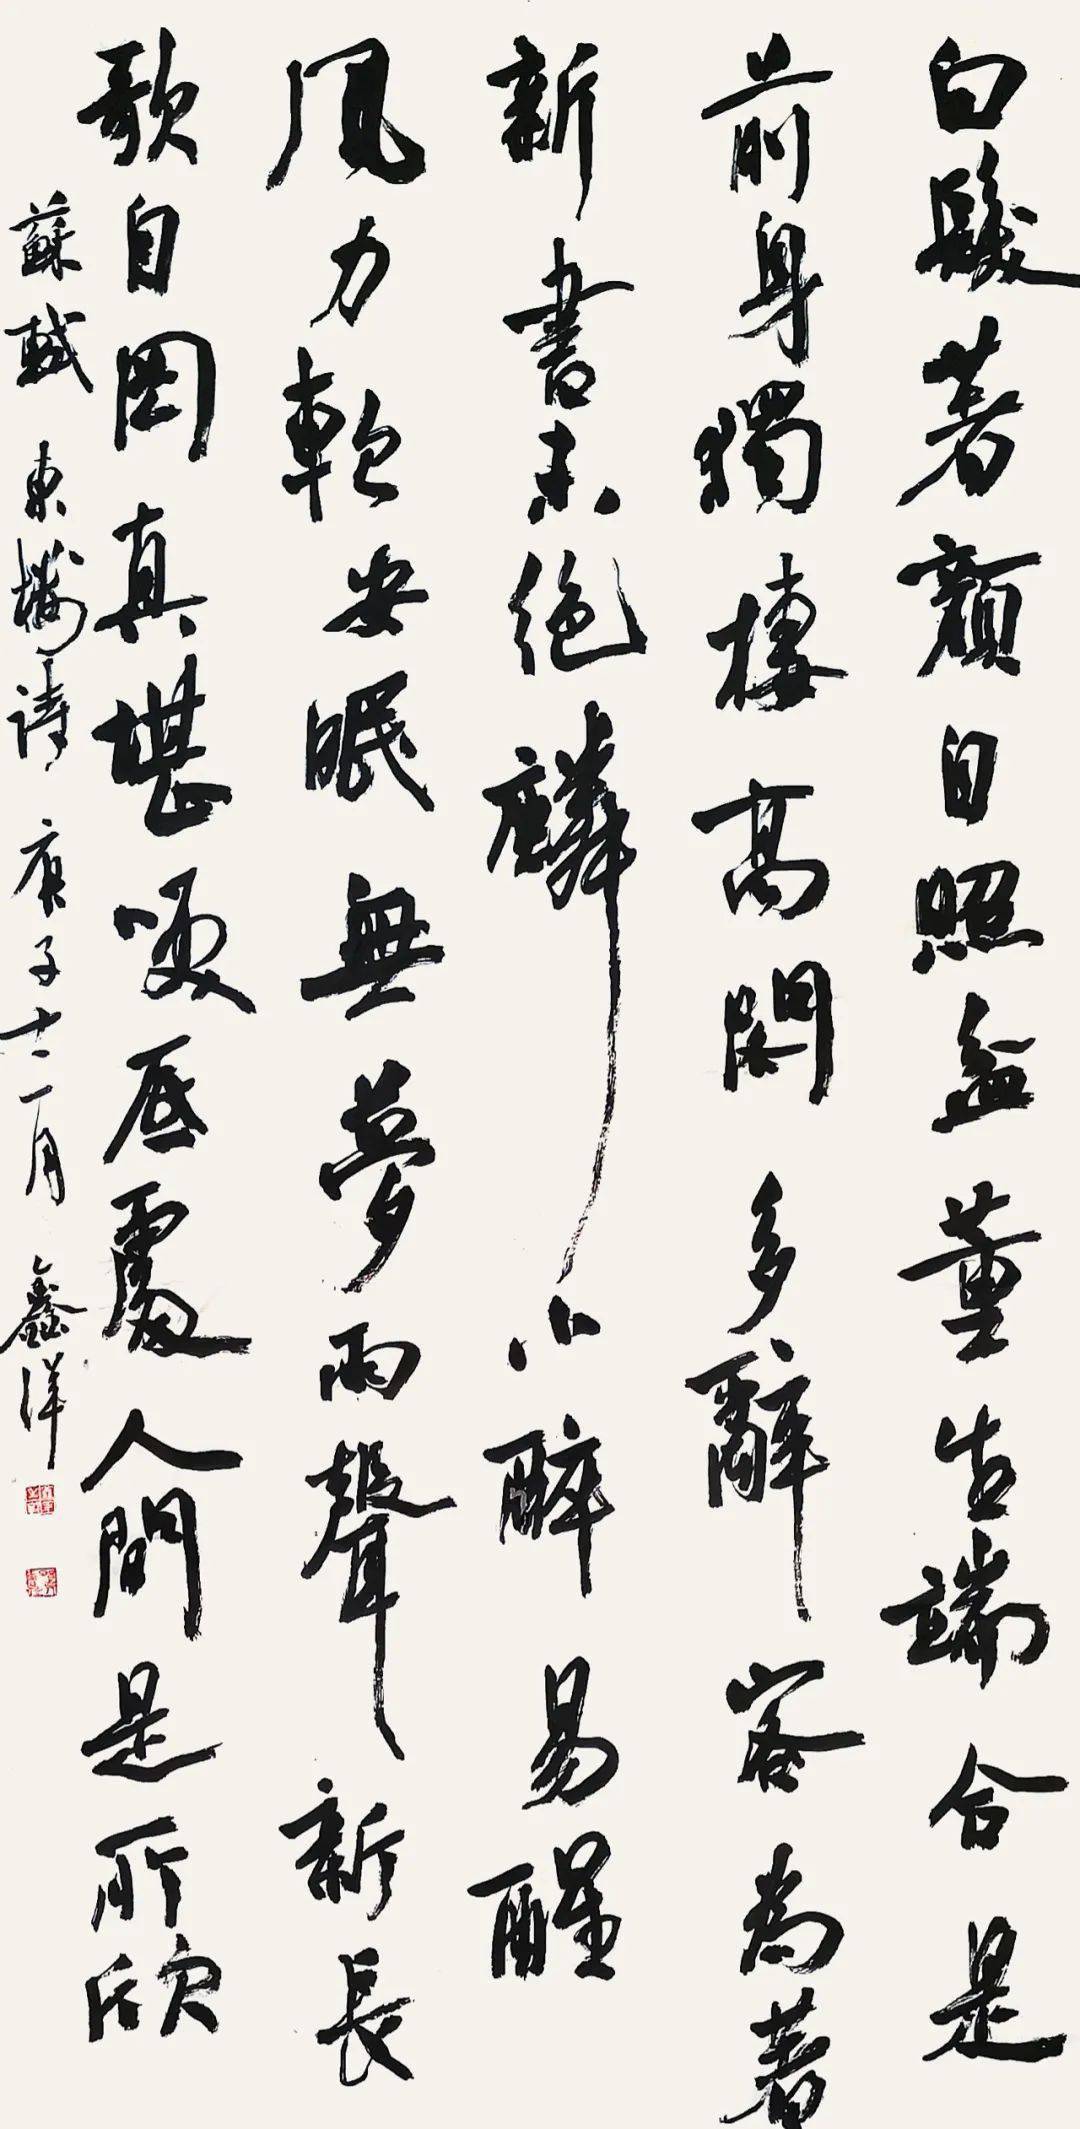 白髮著顏自照盆董生端合是
前身獨棲高閣多辭客為著
新書未絕麟小醉易醒
風力軟安眠無夢雨聲新長
歌自罔真堪咲底處人間是所欣
蘇軾 東樓詩 庚子十二月 鑫洋